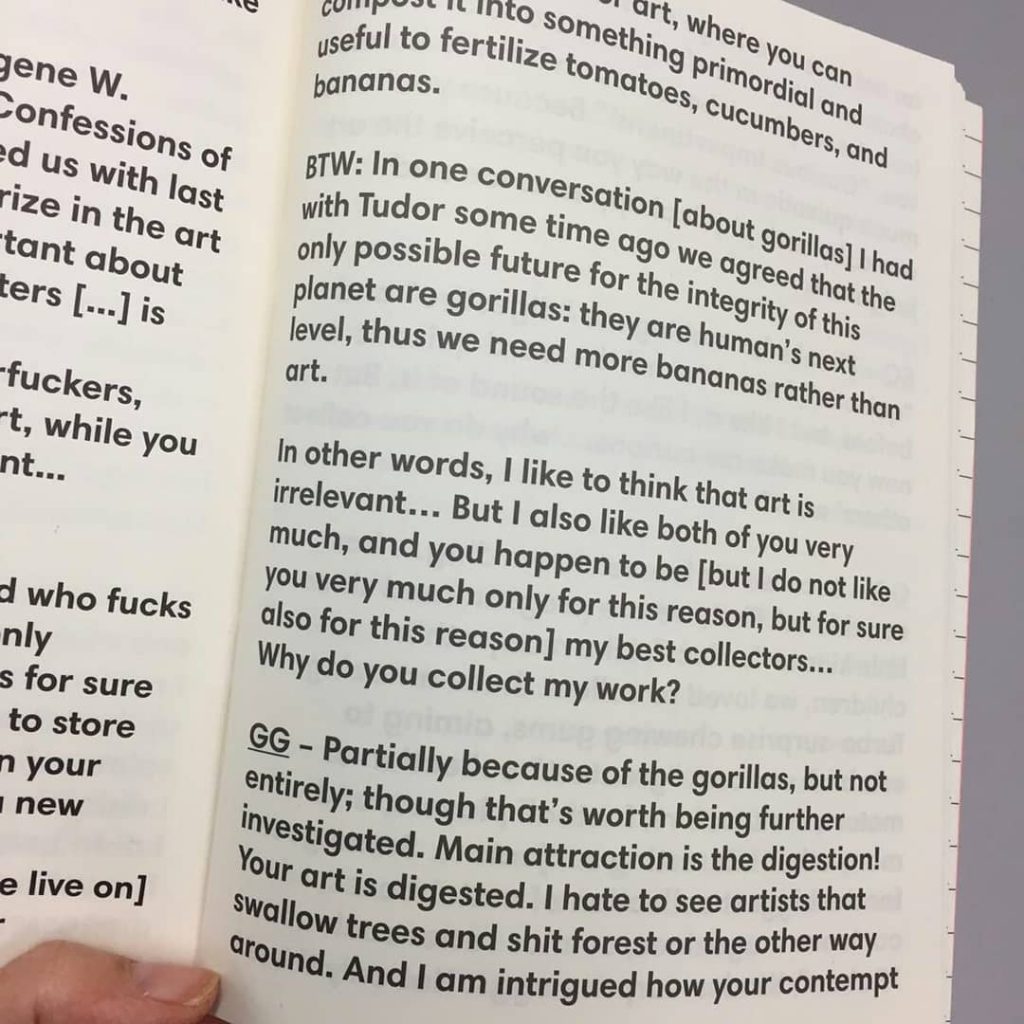 gene W.
Confessions of
ed us with last
rize in the art
tant about
ters [...] is
rfuckers,
rt, while you
nt...
d who fucks
nly
s for sure
to store
n your
new
e live on]
art, where you can
compost it into something primordial and
useful to fertilize tomatoes, cucumbers, and
bananas.
BTW: In one conversation [about gorillas] I had
with Tudor some time ago we agreed that the
only possible future for the integrity of this
planet are gorillas: they are human's next
level, thus we need more bananas rather than
art.
In other words, I like to think that art is
irrelevant... But I also like both of you very
much, and you happen to be [but I do not like
you very much only for this reason, but for sure
also for this reason] my best collectors...
Why do you collect my work?
GG – Partially because of the gorillas, but not
entirely; though that's worth being further
investigated. Main attraction is the digestion!
Your art is digested. I hate to see artists that
swallow trees and shit forest or the other way
around. And I am intrigued how your contempt